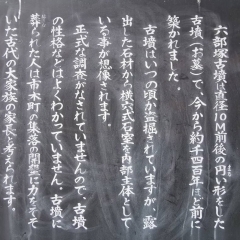 六部塚古墳は直径10M前後の円い形をした
古墳(お墓)で、今から約千四百年ほど前に
築かれました。
古墳はいつの頃か盗掘されていますが、露
出した石材から横穴式石室を内部主体として
いる事が想像されます。
正式な調査がなされていませんので、古墳
の性格などはよくわかっていません。古墳に
葬られた人は市本町の集落の開発に力をそそ
いだ古代の大家族の家長と考えられます。